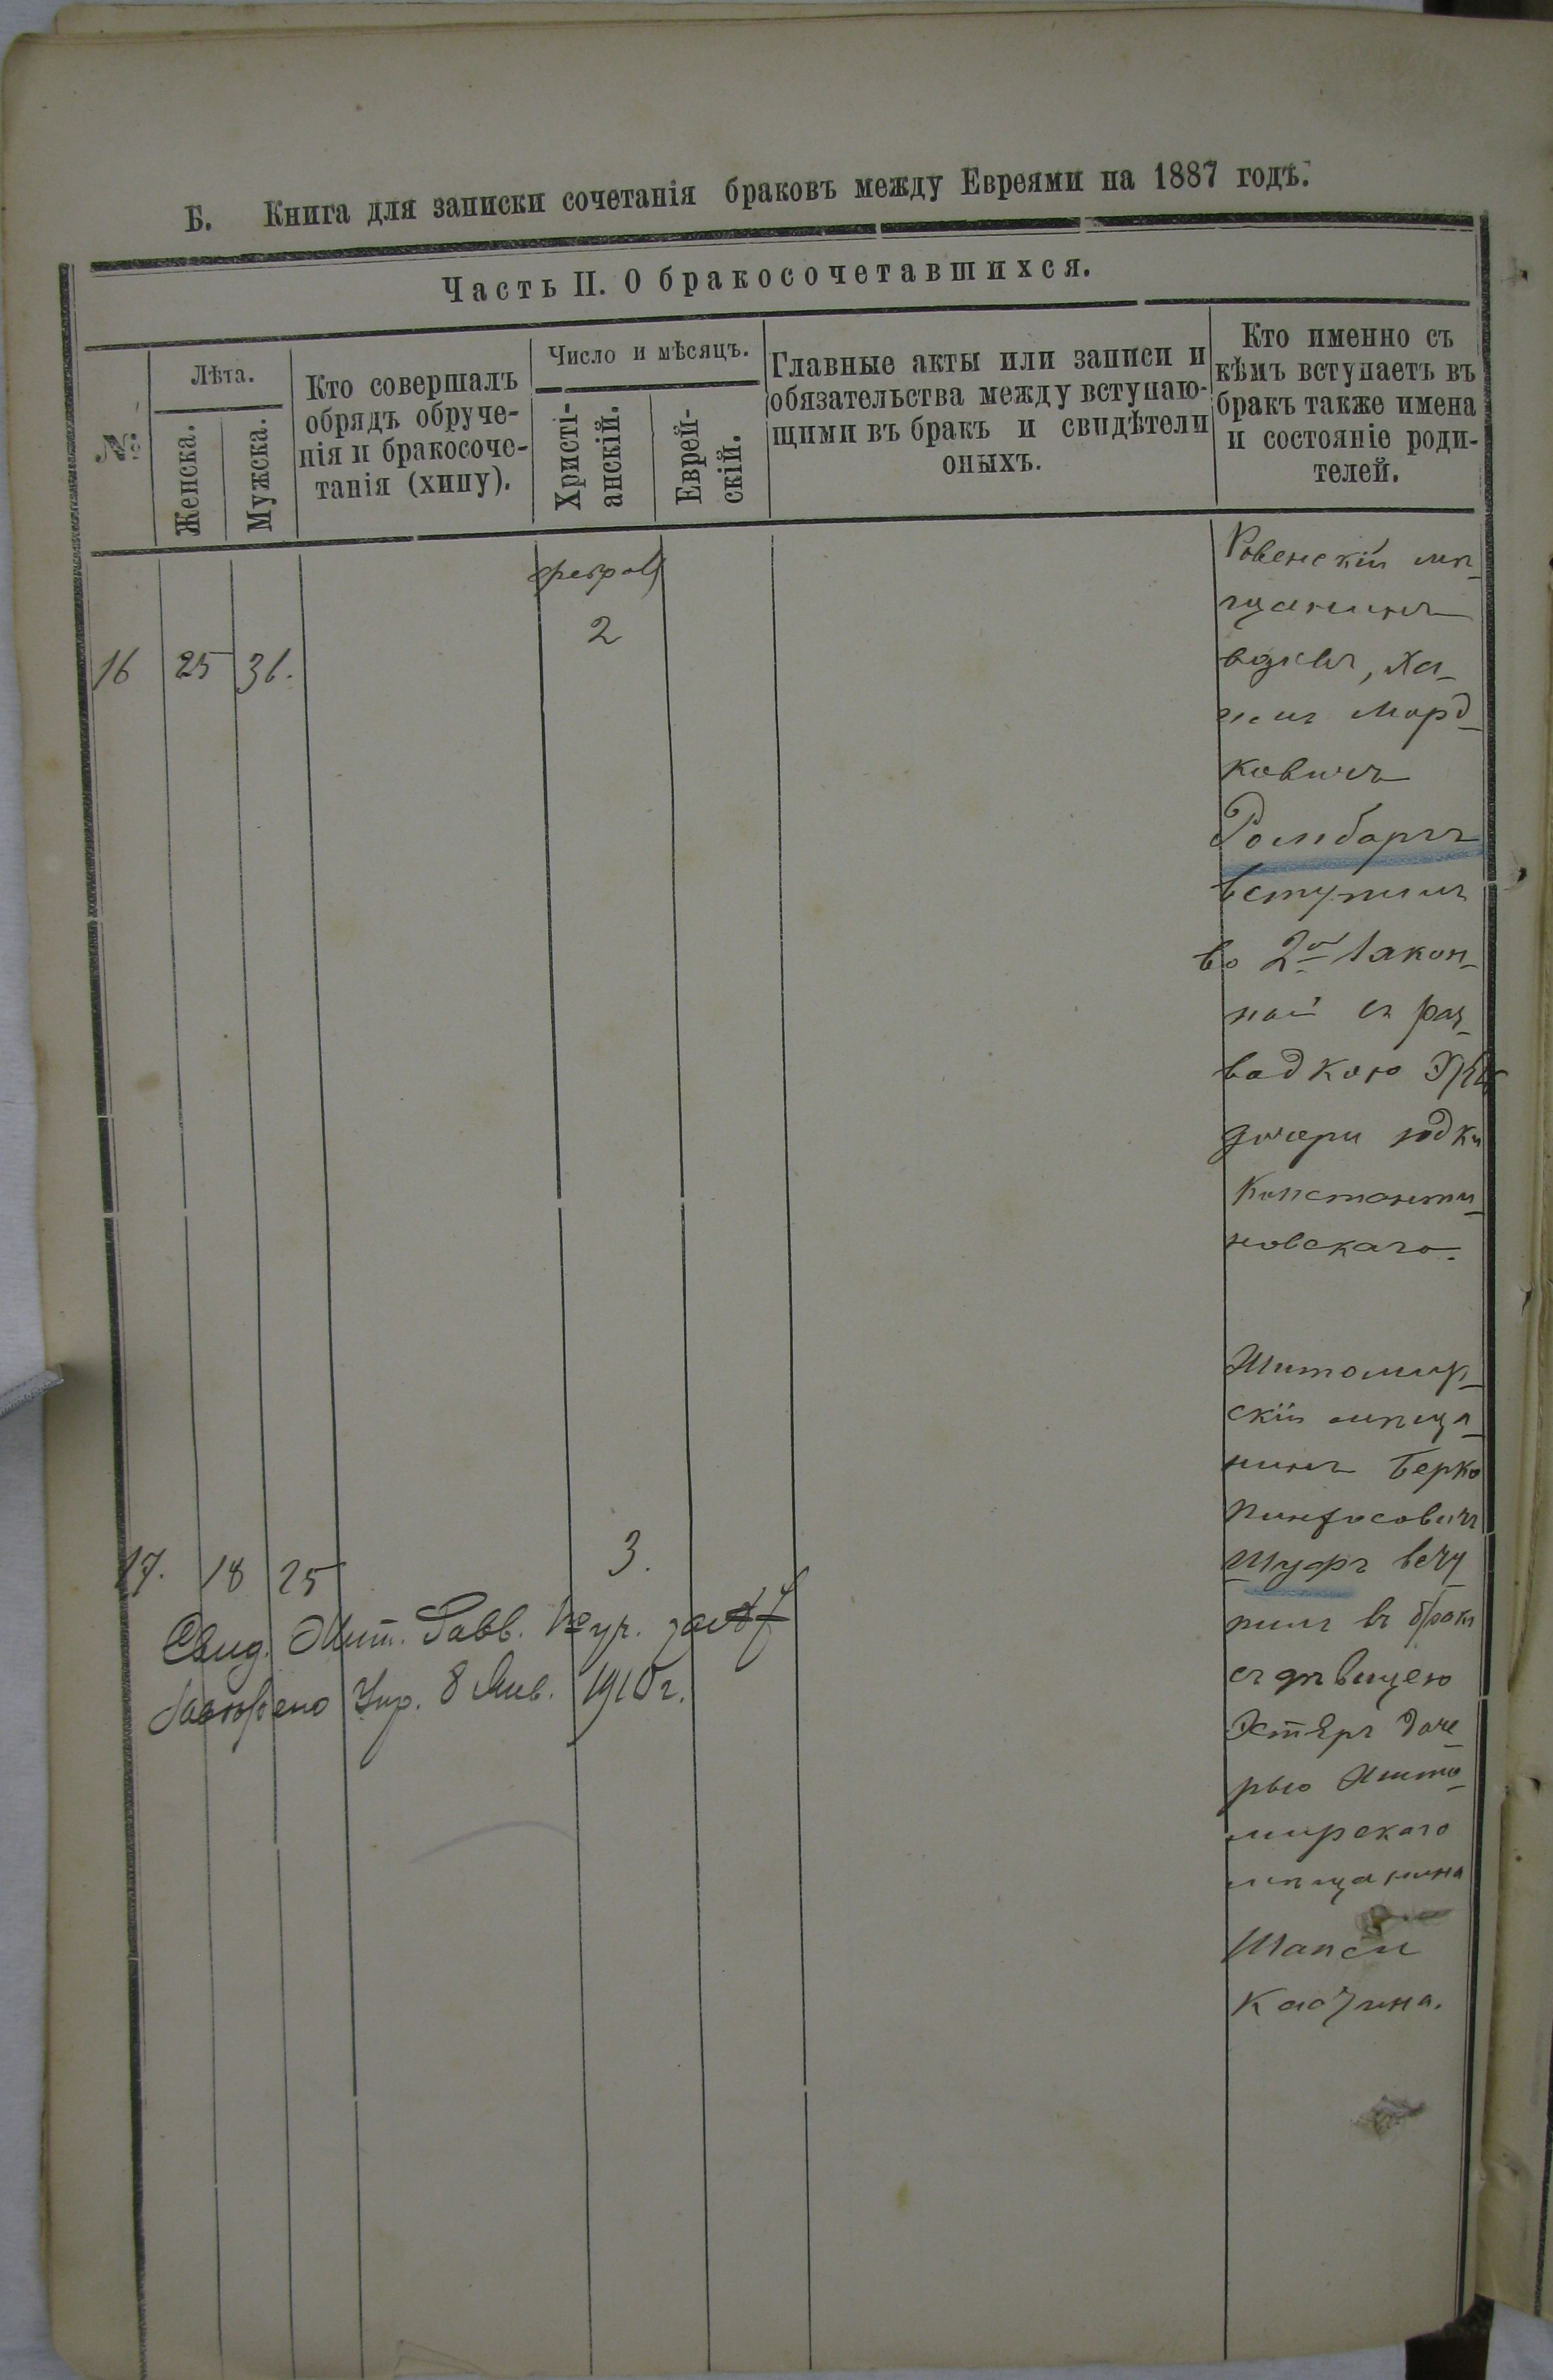 Б. Книга для записки сочетанія браковъ между Евреями на 1887 годъ.
Часть II. О бракосочетавшихся.
№
Лѣта.
Женска.
Мужска.
Кто совершалъ
обрядъ обруче-
нія и бракосоче-
танія (хипу).
Число и мѣсяцъ.
Христі-
анскій.
Еврей-
скій.
Главные акты или записи и
обязательства между вступаю-
щими въ бракъ и свидѣтели
оныхъ.
Кто именно съ
кѣмъ вступаетъ въ
бракъ также имена
и состояніе роди-
телей.
16 25 31.
2
Ровенскій мѣ-
щанинъ
вдовъ, Ха-
имъ Морд-
ковичъ
вступилъ
во 2й закон-
ной съ раз-
водкою
дочери Юдки
Константи-
новскаго.
17. 18 25 3.
Житомир-
скій мѣща-
нинъ Берко
Пинхосовичъ
Шуфъ всту
пилъ въ бракъ
съ дѣвицею
Эстеръ доче-
рью Жито-
мирскаго
мѣщанина
Шапси
Свид. Жит. Равв.
Упр. 8 Янв. 1910 г.